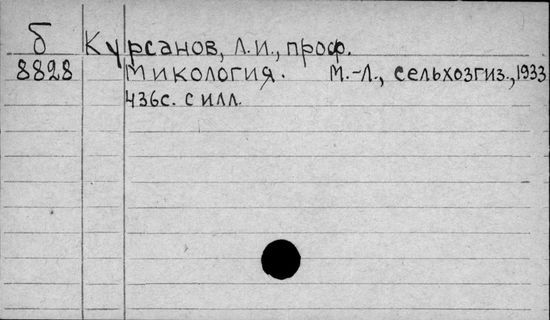 б Курсанов, Л.И., проф.
8828 Микология. М.-Л., сельхозгиз., 1933
436с. с илл.